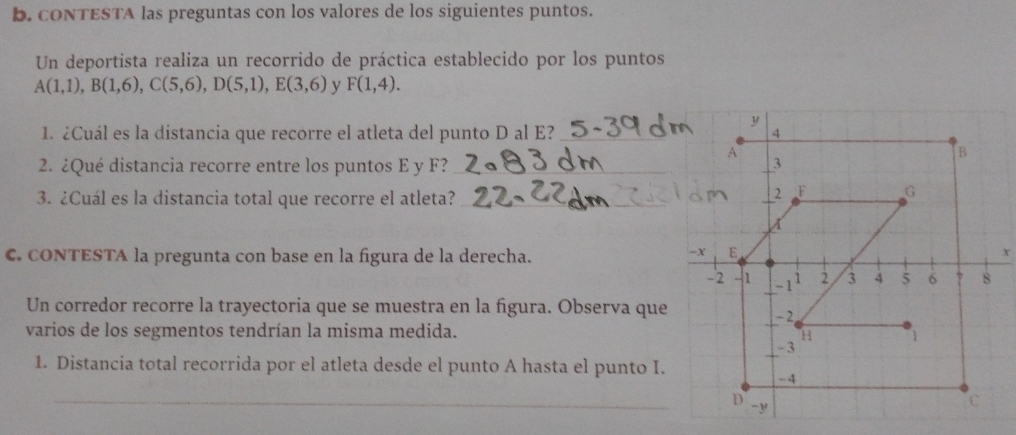 b. CONTESTA las preguntas con los valores de los siguientes puntos.
Un deportista realiza un recorrido de práctica establecido por los puntos
A(1,1), B(1,6), C(5,6), D(5,1), E(3,6) y F(1,4).
1. ¿Cuál es la distancia que recorre el atleta del punto D al E? 5-39 dm
2. ¿Qué distancia recorre entre los puntos E y F? 2.83 dm
3. ¿Cuál es la distancia total que recorre el atleta? 22.22 dm 22.21 dm
C. CONTESTA la pregunta con base en la figura de la derecha.
Un corredor recorre la trayectoria que se muestra en la figura. Observa que
varios de los segmentos tendrían la misma medida.
1. Distancia total recorrida por el atleta desde el punto A hasta el punto I.
y
4
A
B
3
2 F G
1
-x E x
-2 -1 1 2 3 4 5 6 7 8
-1
-2
H I
-3
-4
D -y C